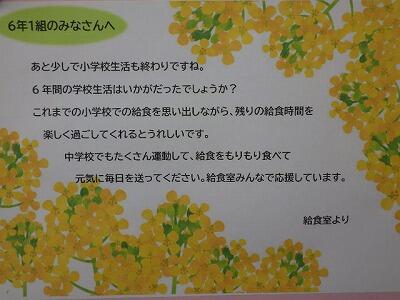 6年1組のみなさんへ
あと少しで小学校生活も終わりですね。
6年間の学校生活はいかがだったでしょうか？
これまでの小学校での給食を思い出しながら、残りの給食時間を
楽しく過ごしてくれるとうれしいです。
中学校でもたくさん運動して、給食をもりもり食べて
元気に毎日を送ってください。給食室みんなで応援しています。
給食室より